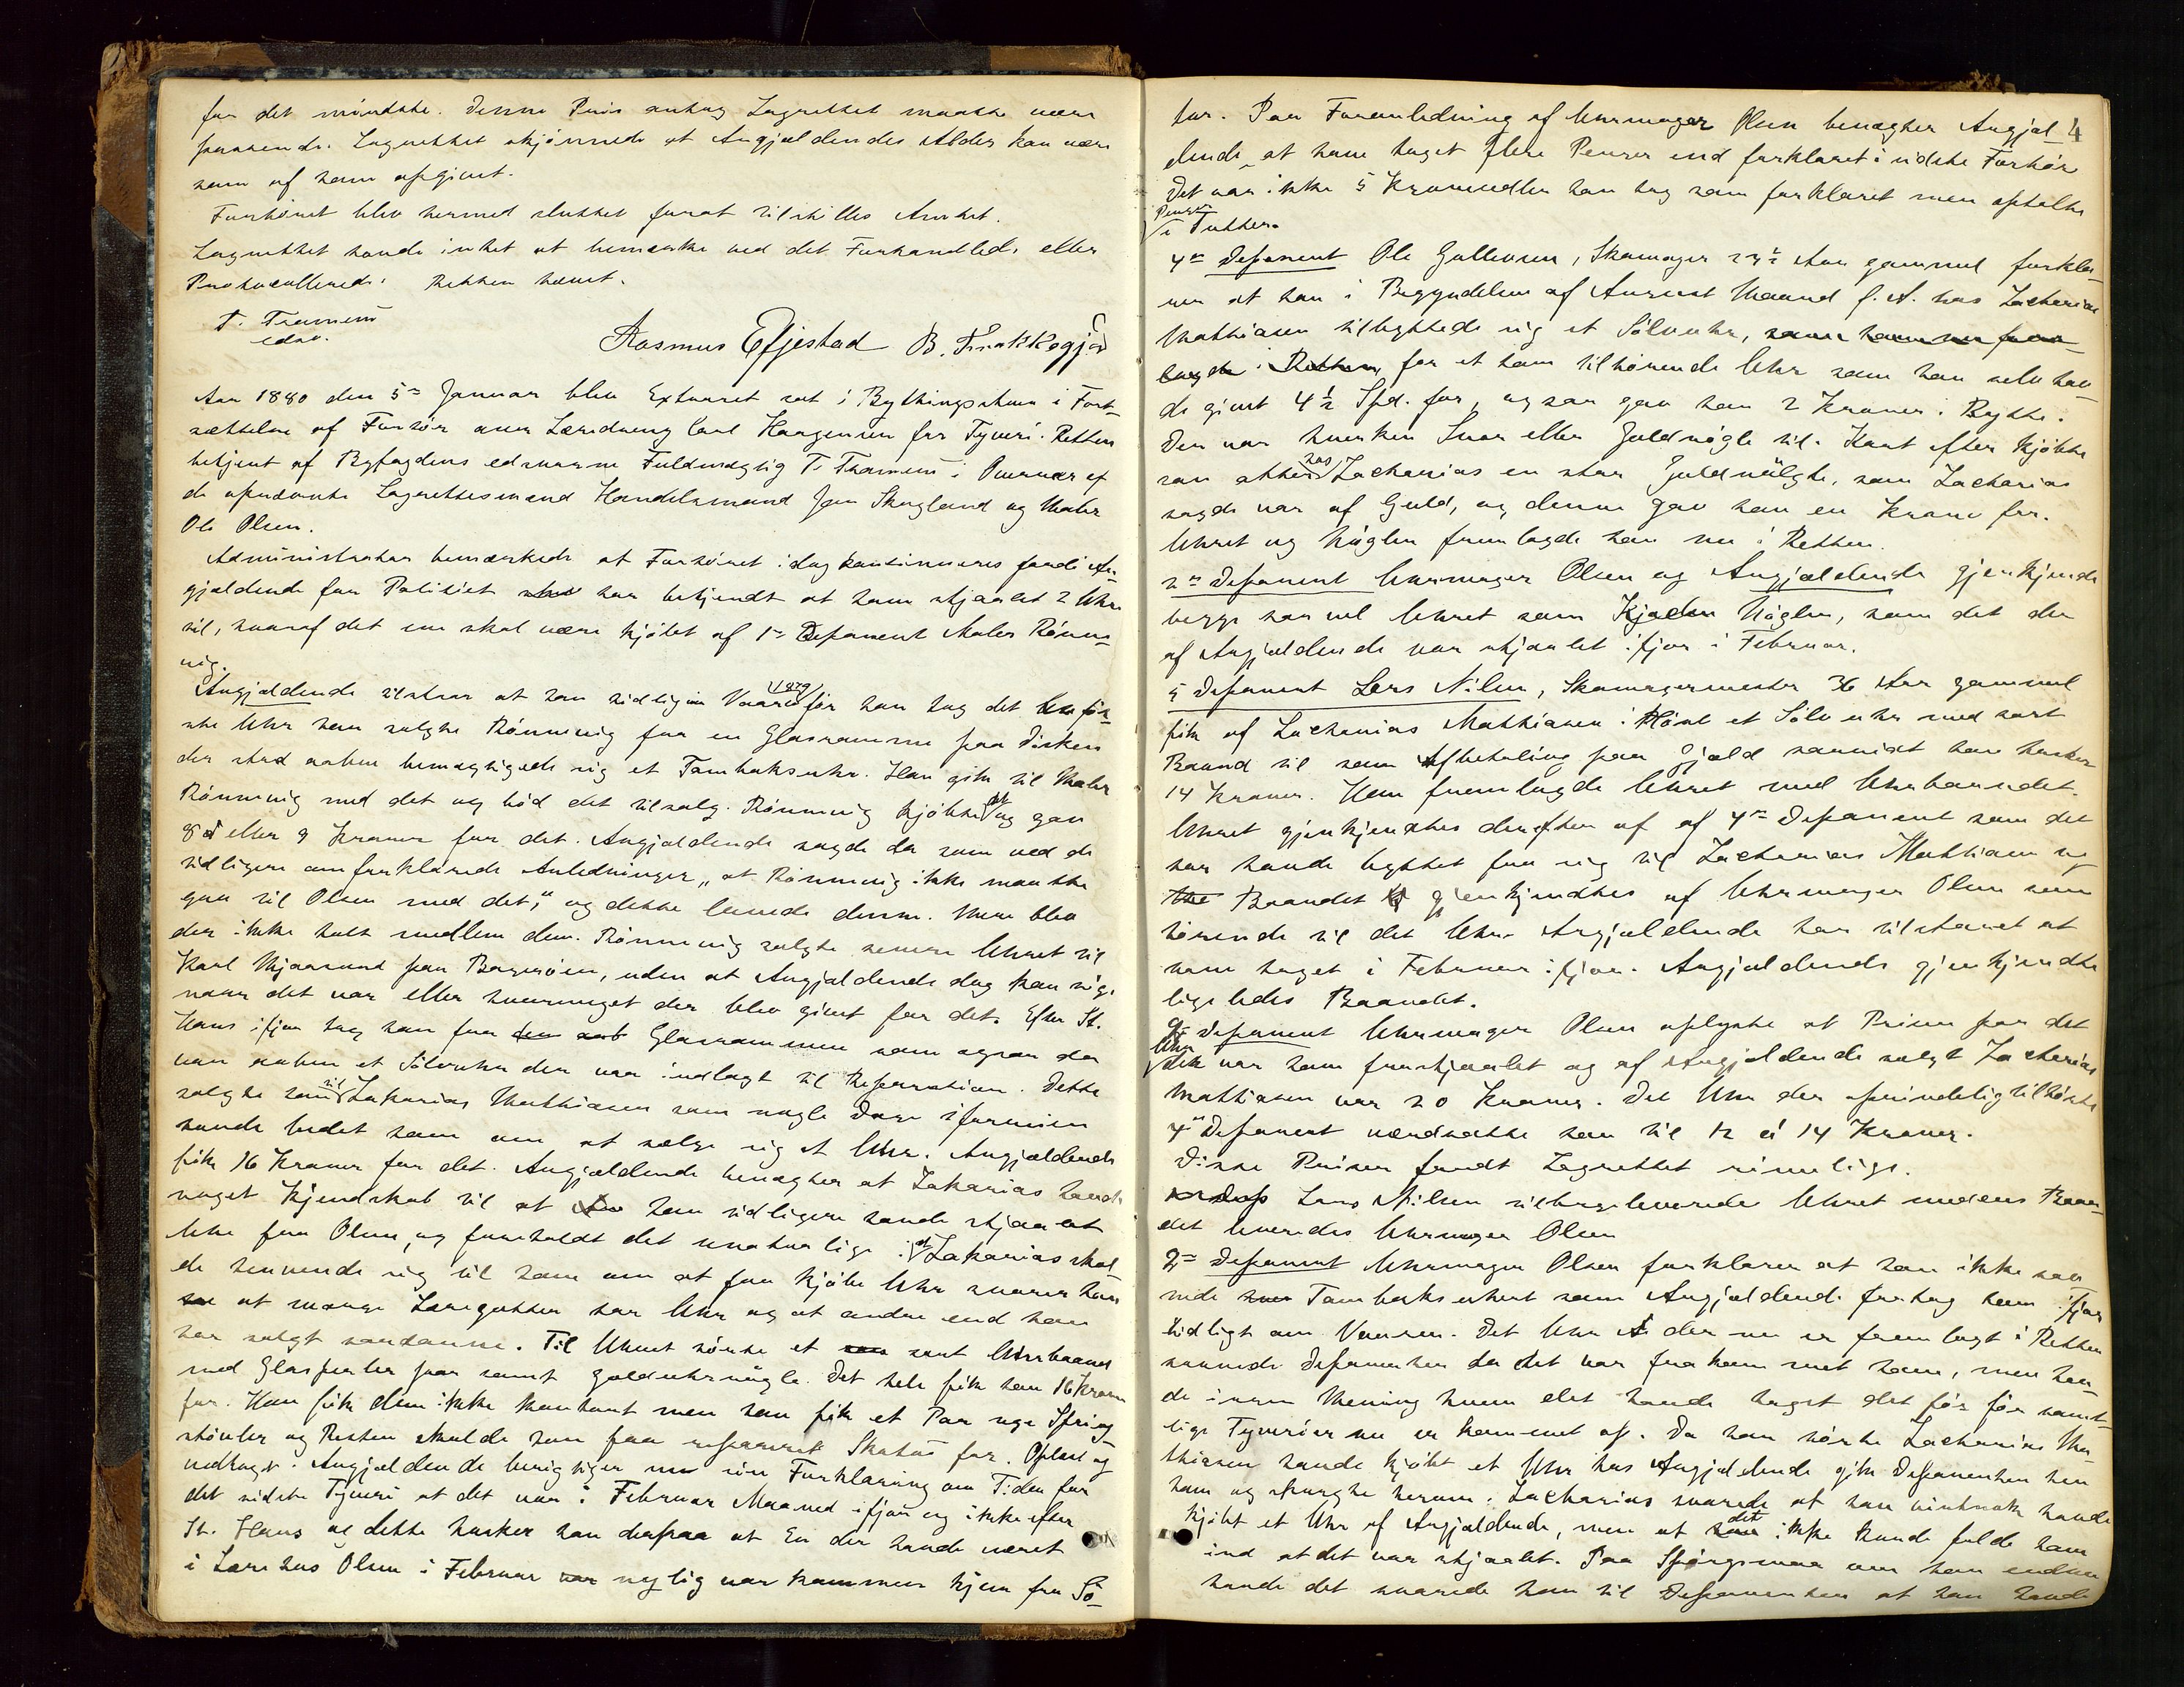 for det mindste. Denne Pris antog Lagrettet maatte være
passende. Lagrettet skjønnede at Angjældendes Alder kan være
som af ham opgivet.
Forhøret blev hermed sluttet forat tilstilles Amtet.
Lagrettet havde intet at bemærke ved det Forhandlede eller
Protocollerede. Retten hævet.
T. Tramem
edsv.
Rasmus Efjestad B.
Aar 1880 den 5te Januar blev Extraret sat i Bythingstuen i Fort-
sættelse af Forhør over Læredreng Carl Haagensen for Tyveri. Retten
betjent af Byfogdens edsvorne Fuldmægtig T. Tramem i Overvær af
de opnævnte Lagrettesmænd Handelsmand Jon Skogland og Maler
Ole Olsen.
Administrator bemærkede at Forhøret idag kontinueres fordi An-
gjældende for Politiet har bekjendt at have stjaalet 2 Uhre
til, hvoraf det ene skal være kjøbt af 1ste Deponent Maler Rønne-
vig.
Angjældende tilstaar at han tidlig om Vaaren 1879 før han tog det før-
ste Uhr han solgte Rønnevig fra en Glasramme paa Disken
der stod aaben bemægtigede sig et Tombaksuhr. Han gik til Maler
Rønnevig med det og bød det tilsalg. Rønnevig kjøbte det og gav
8 eller 9 Kroner for det. Angjældende sagde da som ved de
tidligere omforklarede Anledninger „at Rønnevig ikke maatte
gaa til Olsen med det", og dette lovede denne. Mere blev
der ikke talt mellem dem. Rønnevig solgte senere Uhret til
Karl Mjaasund paa Bagerøen, uden at Angjældende dog kan sige
naar det var eller hvormeget der blev givet for det. Efter St.
Hans ifjor tog han fra Glasrammen som ogsaa da
var aaben et Sølvuhr der var indlagt til Reparation. Dette
solgte han til Zakarias Mathiasen som nogle Dage iforveien
havde bedet ham om at sælge sig et Uhr. Angjældende
fik 16 Kroner for det. Angjældende benægter at Zakarias havde
noget Kjendskab til at han tidligere havde stjaalet
Uhre fra Olsen, og foreholdt det unaturlige i at Zakarias skul-
de henvende sig til ham om at faa kjøbe Uhr svarer han
at mange Læregutter har Uhr og at andre end han
har solgt saadanne. Til Uhret hørte et sort Uhrbaand
med Glasperler paa samt Golduhrnøgle. Det hele fik han 16 Kroner
for. Han fik dem ikke kontant men han fik et Par nye Spring-
støvler og Resten skulde han faa repareret Skotøi for. Oplæst og
vedtaget. Angjældende berigtiger nu sin Forklaring om Tiden for
det sidste Tyveri at det var i Februar Maaned ifjor og ikke efter
St. Hans og dette husker han derpaa at En der havde været
i Lære hos Olsen i Februar nylig var kommen hjem fra Sø-
4
tur. Paa Foranledning af Uhrmager Olsen benægter Angjæl-
dende at have taget flere Penger end forklaret i sidste Forhør
Det var ikke 5 Kronesedler han tog som forklaret men optalte
Penger
i Tutter.
4de Deponent Ole Gullevsen, Skomager 23½ Aar gammel forkla-
rer at han i Begyndelsen af August Maaned f. A. hos Zacharias
Mathiasen tilbyttede sig et Sølvuhr, som han nu frem-
lagde i Retten, for et ham tilhørende Uhr som han selv hav-
de givet 4½ Spd. for, og saa gav han 2 Kroner i Bytte.
Der var hverken Snor eller Guldnøgle til. Kort efter kjøbte
han atter hos Zacharias en stor Guldnøgle, som Zacharias
sagde var af Guld, og denne gav han en Krone for.
Uhret og Nøglen fremlagde han nu i Retten.
2den Deponent Uhrmager Olsen og Angjældende gjenkjende
begge saavel Uhret som Nøglen, som det der
af Angjældende var stjaalet ifjor i Februar.
5 Deponent Lars Nilsen, Skomagermester 36 Aar gammel
fik af Zacharias Mathiasen i Høst et Sølvuhr med sort
Baand til som Afbetaling paa Gjæld saavidt han husker
14 Kroner. Han fremlagde Uhret med Uhrbaandet.
Uhret gjenkjendtes derefter af af 4de Deponent som det
han havde byttet fra sig til Zacharias Mathiasen og
Baandet gjenkjendtes af Uhrmager Olsen som
hørende til det Uhr Angjældende har tilstaaet at
have taget i Februar ifjor. Angjældende gjenkjendte
ligeledes Baandet.
2den Deponent Uhrmager Olsen oplyste at Prisen paa det
Uhr
der var ham frastjaalet og af Angjældende solgt Zacharias
Mathiasen var 20 Kroner. Det Uhr der oprindelig tilhørte
4de Deponent værdsatte han til 12 á 14 Kroner.
Disse Priser fandt Lagrettet rimelige.
Lars Nilsen tilbageleverede Uhret medens Baan-
det leveredes Uhrmager Olsen
2den Deponent Uhrmager Olsen forklarer at han ikke sav-
nede Tombaksuhret som Angjældende fratog ham ifjor
tidligt om Vaaren. Det Uhr der nu er fremlagt i Retten
savnede Deponenten da det var frakommet ham, men hav-
de ingen Mening hvem det havde taget det før før samt-
lige Tyverier nu er kommet op. Da han hørte Zacharias Ma-
thiasen havde kjøbt et Uhr hos Angjældende gik Deponenten hen
ham og spurgte herom. Zacharias svarede at han vistnok havde
kjøbt et Uhr af Angjældende, men at det ikke kunde falde ham
ind at det var stjaalet. Paa Spørgsmaal om han endnu
havde det svarede han til Deponenten at han havde